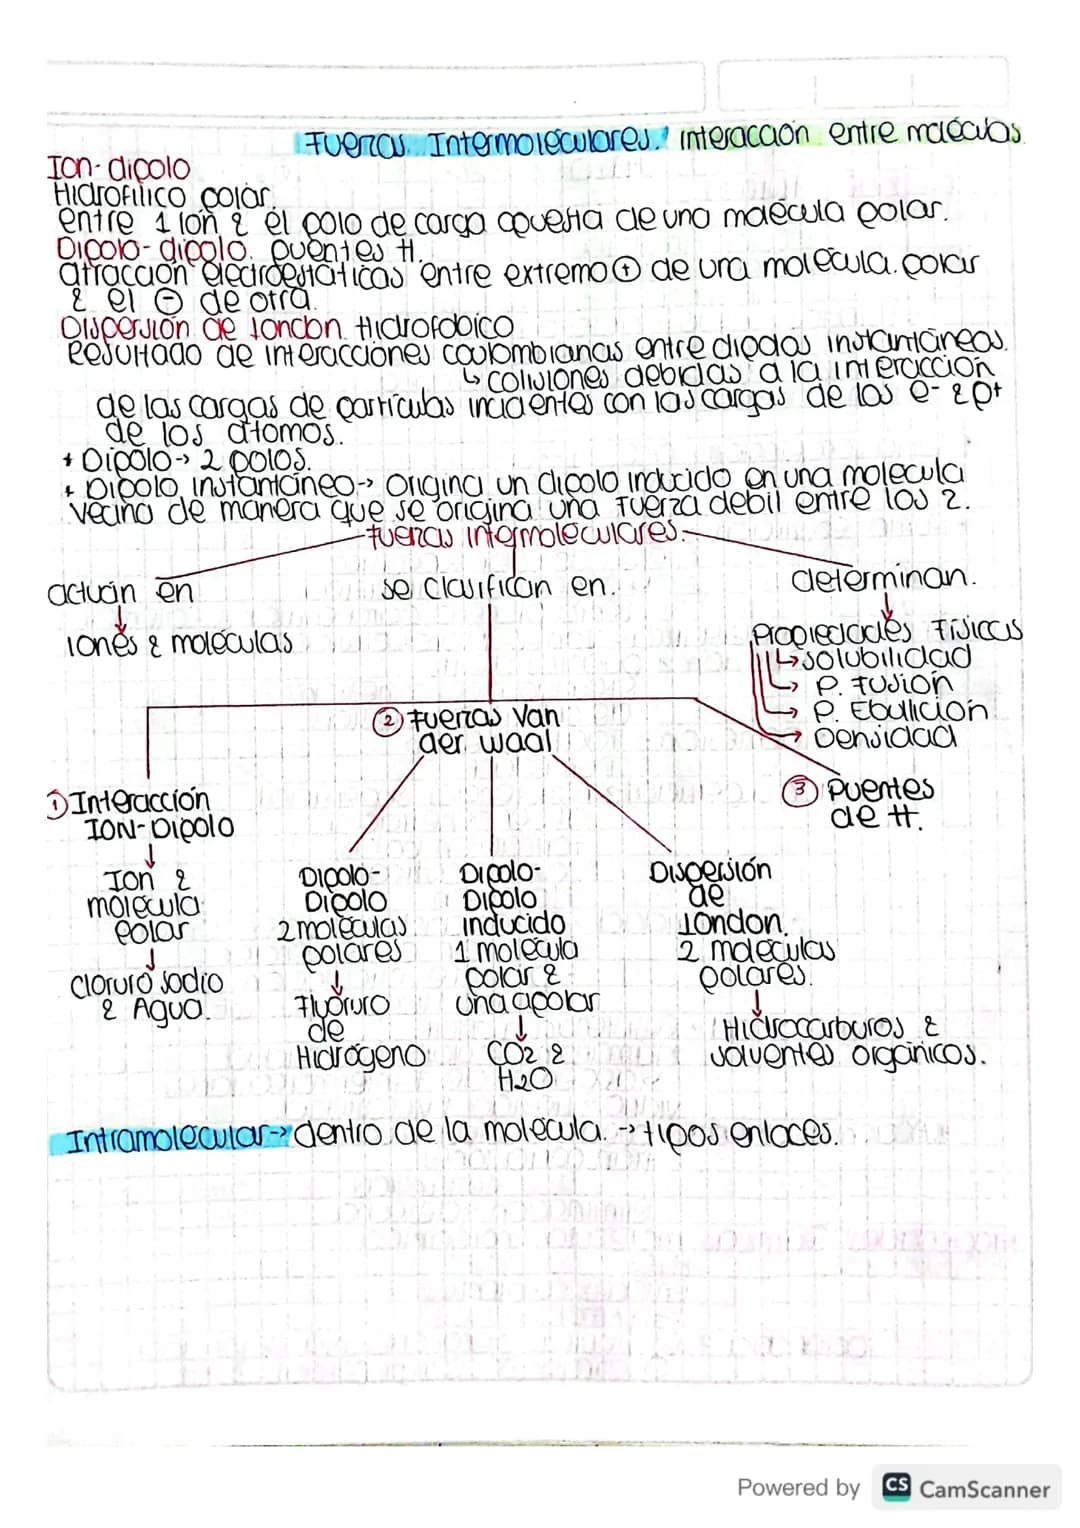 Fuerzas Intermoleculares: interacción entre moléculas.
Ion-dipolo
Hidrofílico polar.
entre 1 ión & el polo de carga opuesta de una molécula polar.
Dipolo-dipolo. puentes H.
atracción electroestáticas entre extremo ⊕ de una molécula polar
& el ⊖ de otra.
Dispersión de London. Hidrofobico
Resultado de interacciones coulombianas entre dipolos instantáneos.
↳ colisiones debidas a la interacción
de las cargas de partículas incidentes con las cargas de los e- & p+
de los átomos.
+ Dipolo → 2 polos.
+ Dipolo instantáneo → origina un dipolo inducido en una molecula
vecina de manera que se origina una fuerza debil entre los 2.
Fuerzas intermoleculares.
actuán en
se clasifican en.
determinan.
Iones & moléculas
Propiedades Físicas
solubilidad
P. Fusión
P. Ebullición
Densidad
② Fuerzas Van
der waal
① Interacción
ION-Dipolo
③ Puentes
de H.
Ion &
molécula
polar
Cloruro sodio
& Agua.
Dipolo-
Dipolo
2 moléculas
polares
Fluoruro
de
Hidrógeno
Dipolo-
Dipolo
inducido
1 molécula
polar &
una apolar
CO2 &
H2O
Dispersión
de
London.
2 moléculas
polares.
Hidrocarburos &
solventes orgánicos.
Intramolecular → dentro de la molécula. → tipos enlaces.
Powered by CS CamScanner